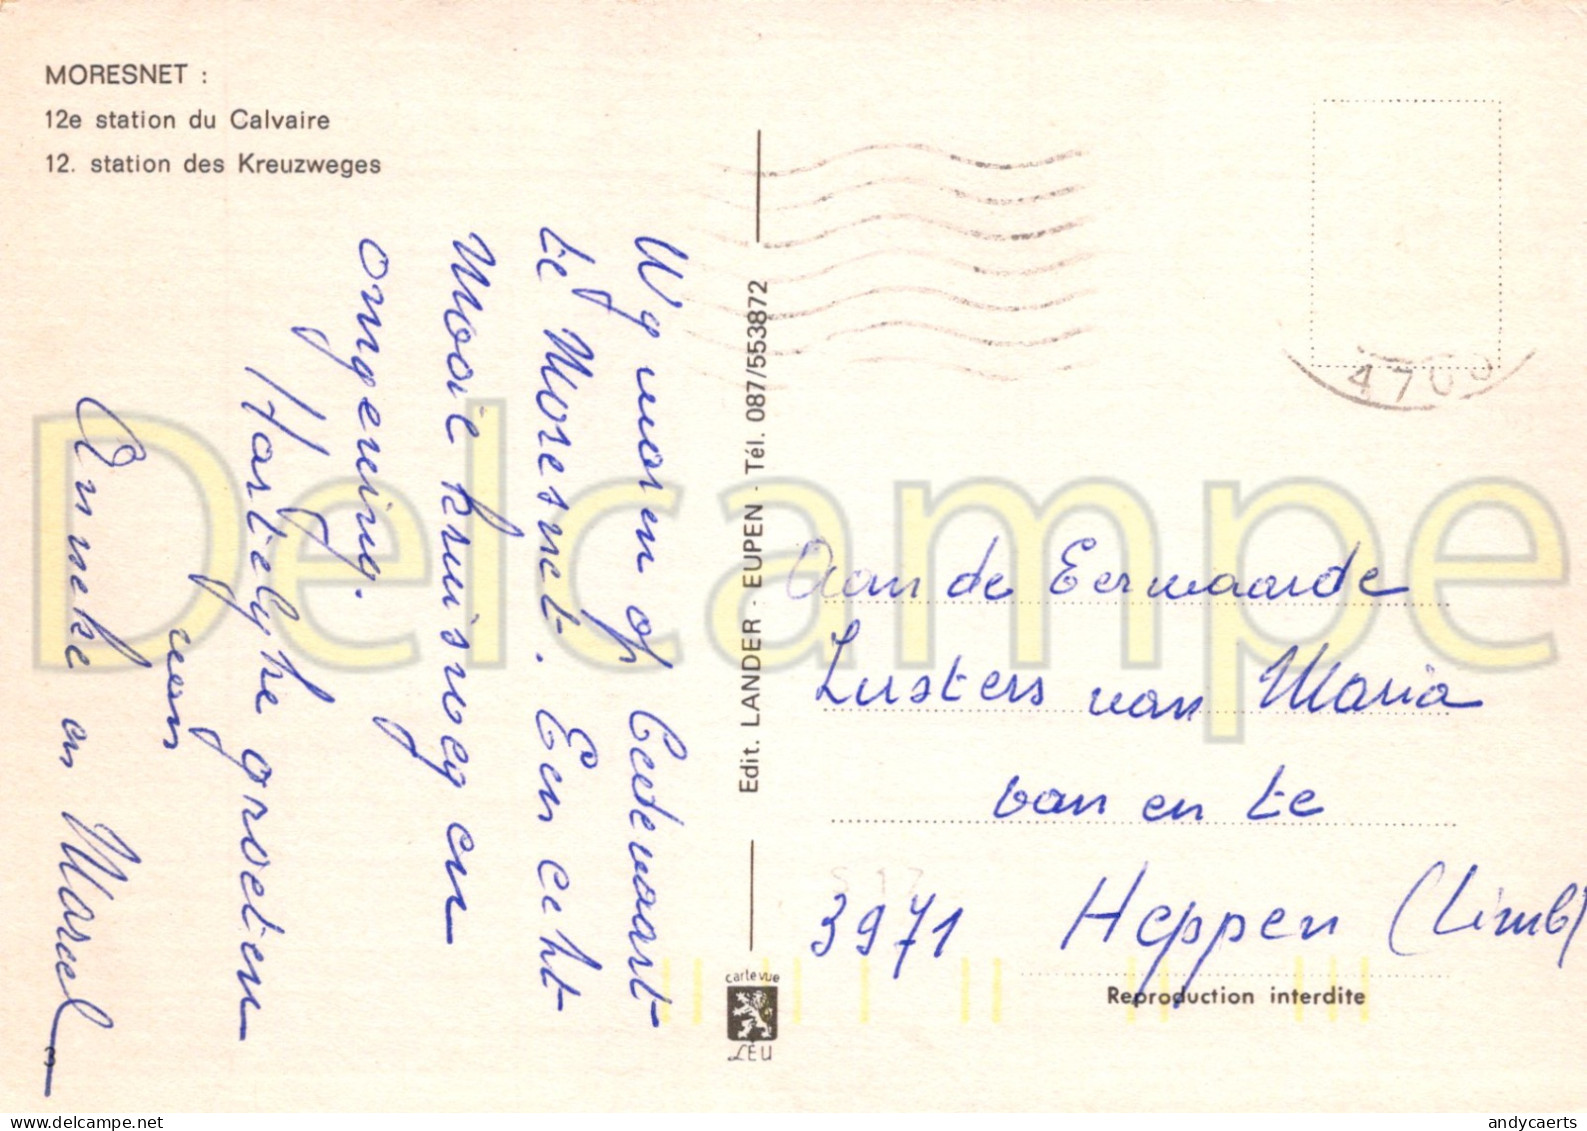 MORESNET :
12e station du Calvaire
12. station des Kreuzweges
Wy waren op Bedevaart
te Moresnet. Een echt
Mooie kruisweg en
omgeving.
Hartelyke groeten
van
Anneke en Marcel
Edit. LANDER - EUPEN - Tél. 087/553872
carte vue
LEU
4700
Aan de Eerwaarde
Zusters van Maria
van en te
3971 Heppen (Limb)
Reproduction interdite
Delcampe
andycaerts